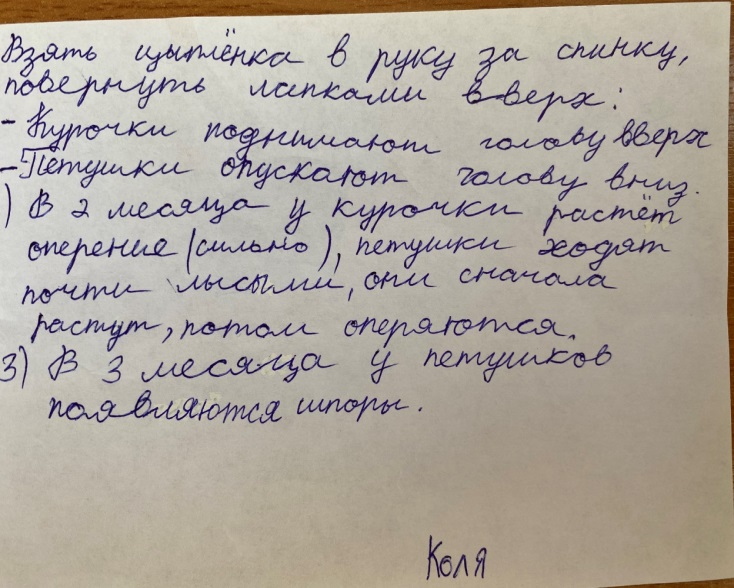 Взять цыплёнка в руку за спинку,
повернуть лапками вверх:
- Курочки поднимают голову вверх
- Петушки опускают голову вниз.
) В 2 месяца у курочки растёт
оперение (сильно), петушки ходят
почти лысыми, они сначала
растут, потом оперяются.
3) В 3 месяца у петушков
появляются шпоры.
Коля